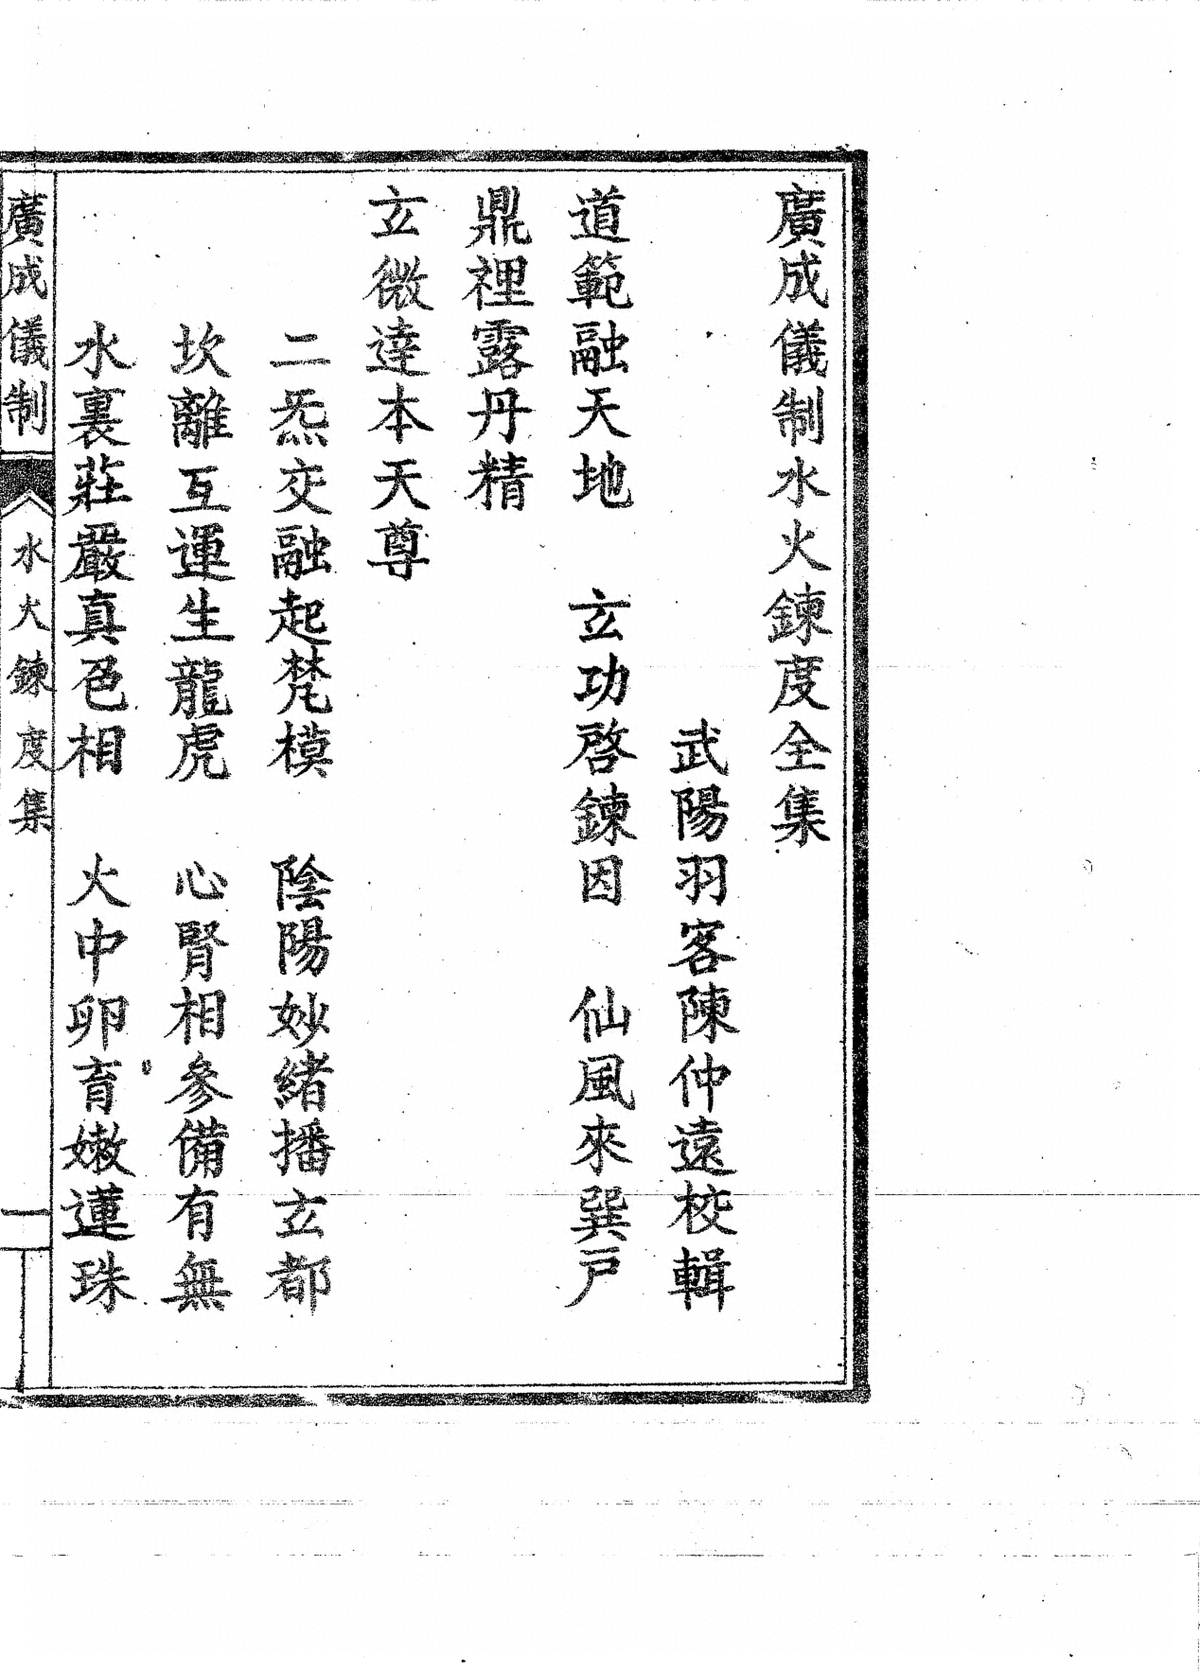 廣成儀制水火鍊度全集
武陽羽客陳仲遠校輯
道範融天地　玄功啓鍊因　仙風來巽戶
鼎裡露丹精
玄微達本天尊
二炁交融起梵模　陰陽妙緒播玄都
坎離互運生龍虎　心腎相參備有無
水裏莊嚴真色相　火中卵育嫩蓮珠
廣成儀制　水火鍊度集　一